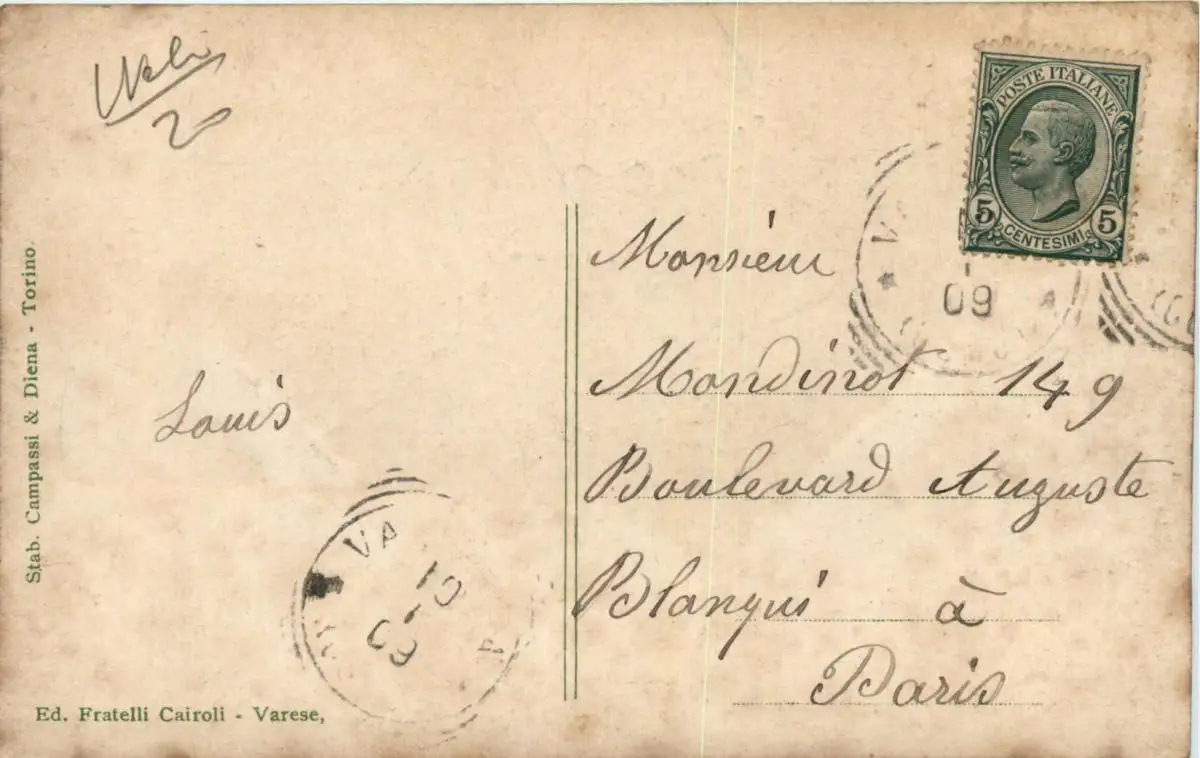 20
POSTE ITALIANE
5 CENTESIMI 5
VA
09
Monsieur
Mondinot 149
Boulevard Auguste
Blanqui à
Paris
Louis
VA
10
09
Stab. Campassi & Diena - Torino.
Ed. Fratelli Cairoli - Varese,